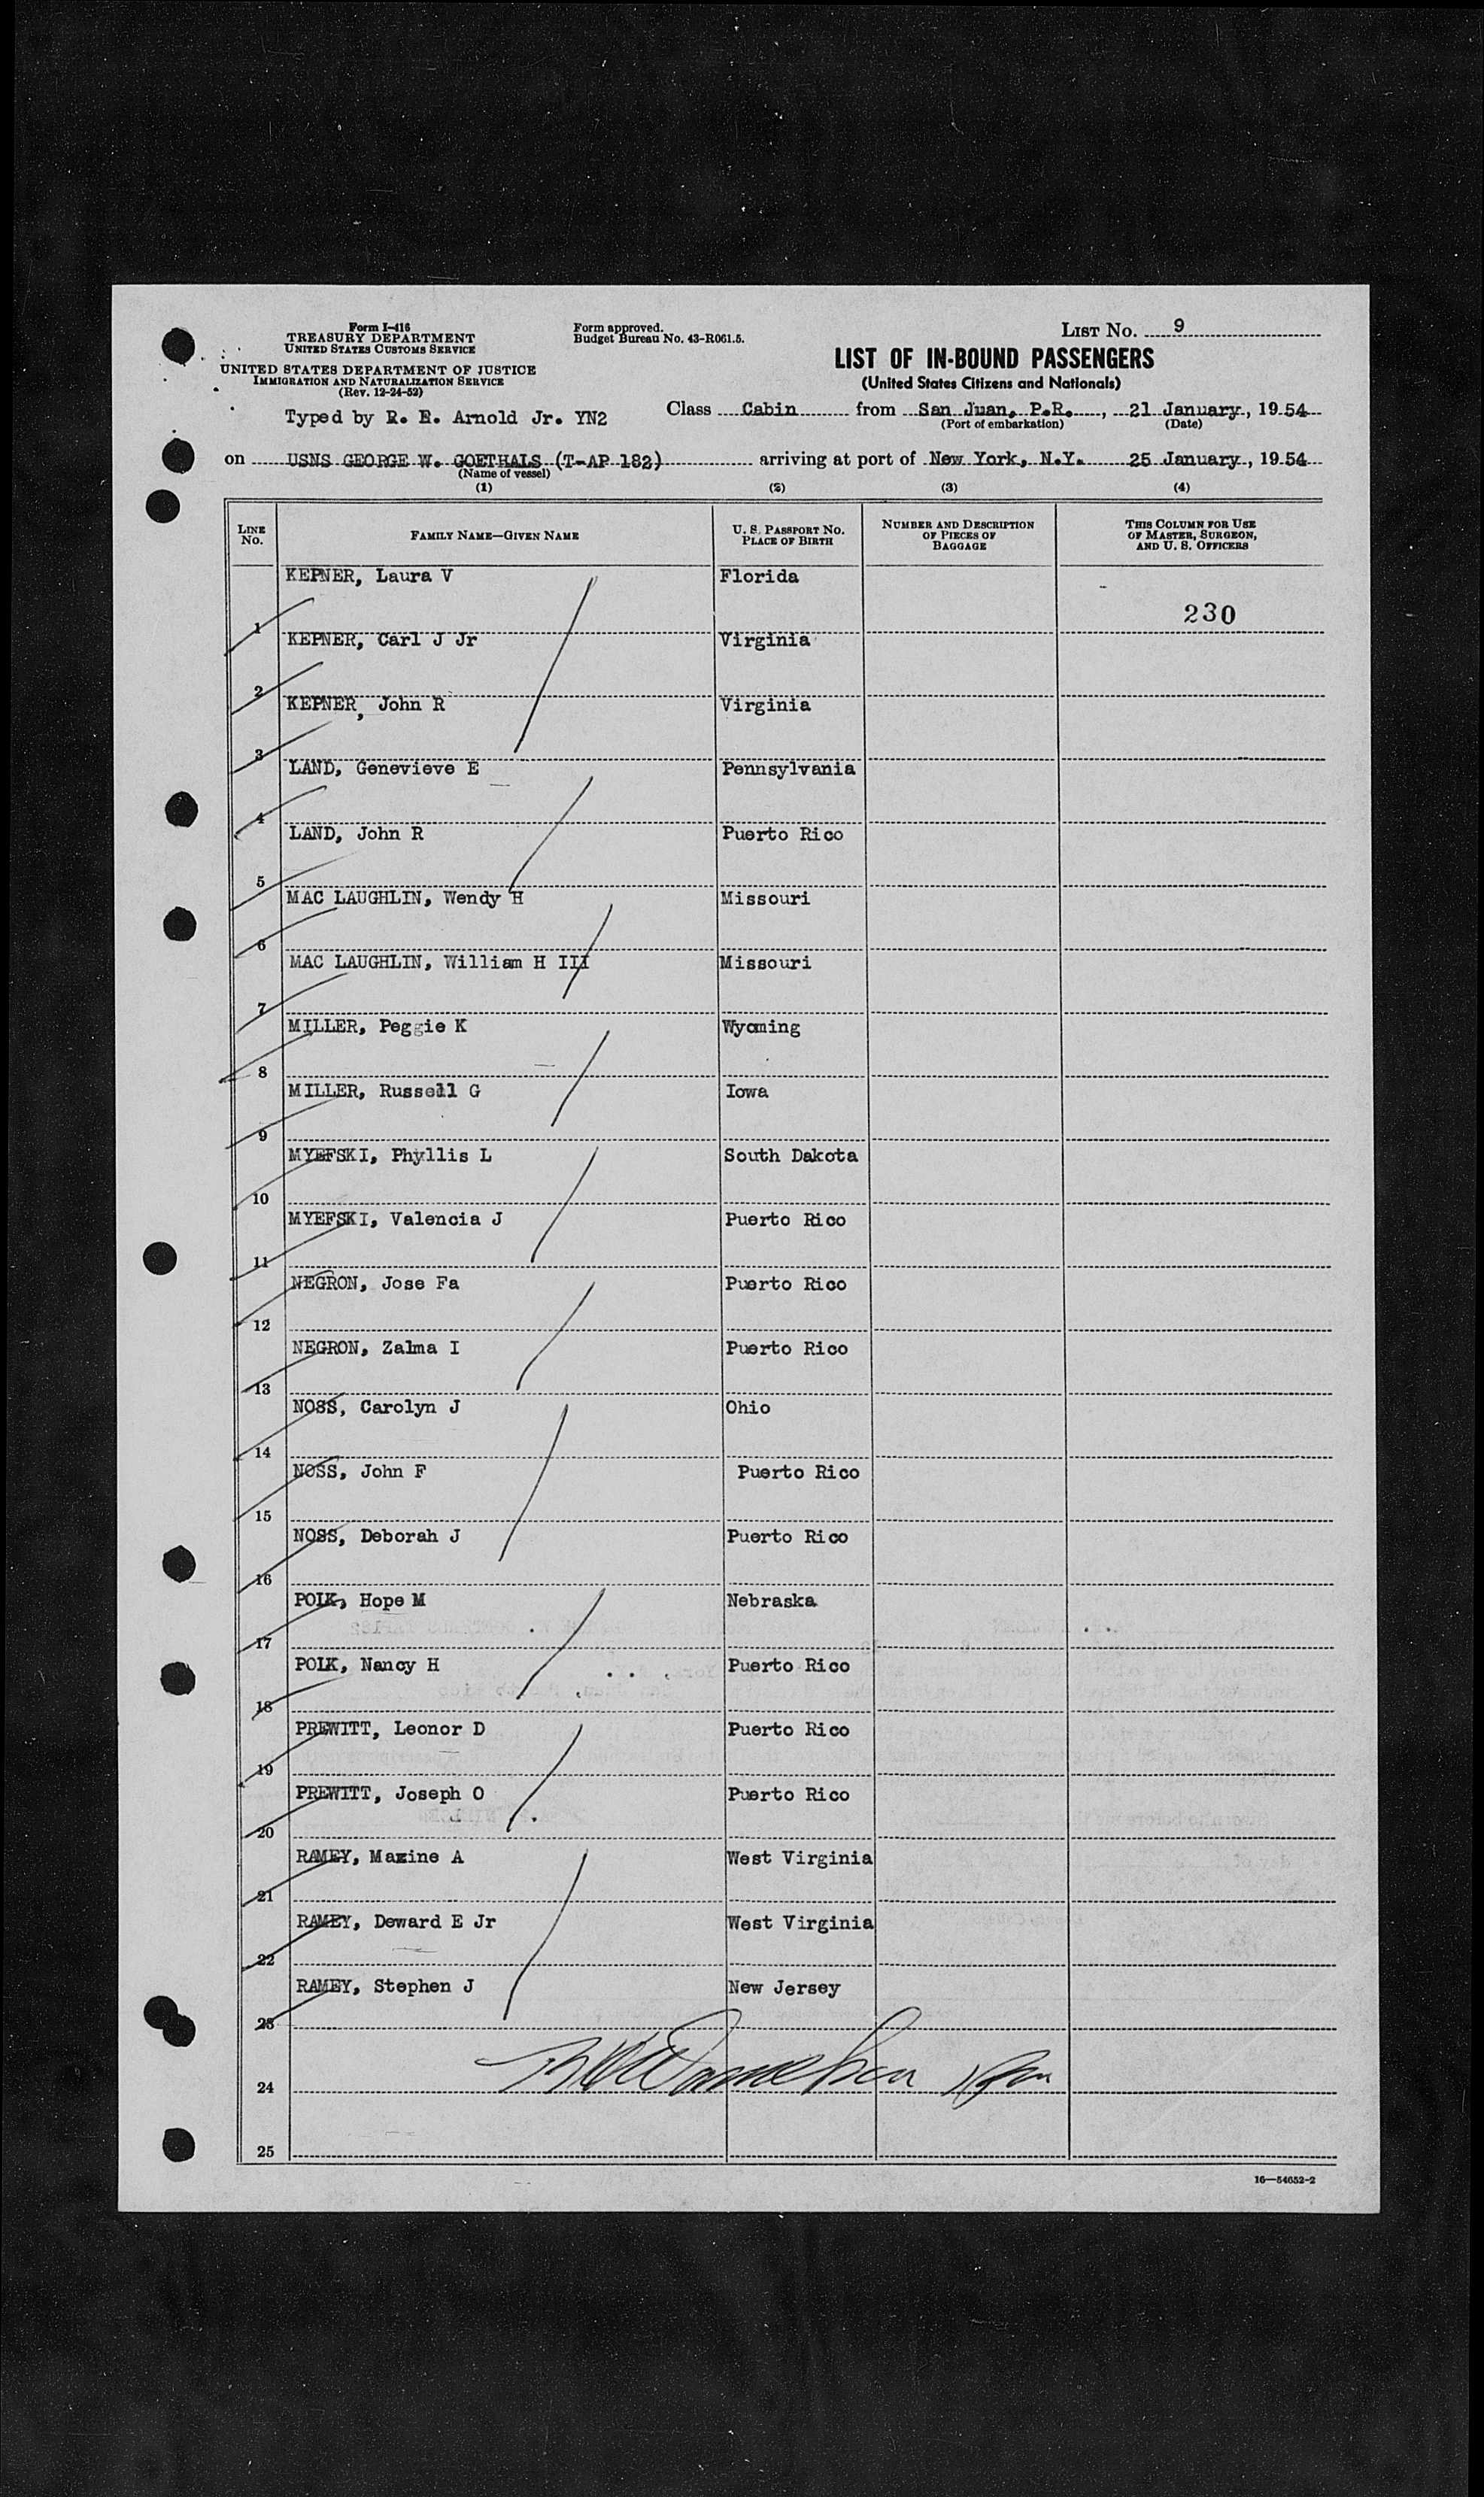 Form I-416
TREASURY DEPARTMENT
UNITED STATES CUSTOMS SERVICE
UNITED STATES DEPARTMENT OF JUSTICE
IMMIGRATION AND NATURALIZATION SERVICE
(Rev. 12-24-52)
Typed by R. E. Arnold Jr. YN2
Form approved.
Budget Bureau No. 43-R061.5.
LIST No. 9
LIST OF IN-BOUND PASSENGERS
(United States Citizens and Nationals)
Class Cabin from San Juan, P.R., 21 January, 1954
(Port of embarkation) (Date)
on USNS GEORGE W. GOETHALS (T-AP 182) arriving at port of New York, N.Y. 25 January, 1954
(Name of vessel)
(1) (2) (3) (4)
LINE NO. FAMILY NAME—GIVEN NAME U. S. PASSPORT NO. PLACE OF BIRTH NUMBER AND DESCRIPTION OF PIECES OF BAGGAGE THIS COLUMN FOR USE OF MASTER, SURGEON, AND U. S. OFFICERS
1 KEPNER, Laura V Florida 230
2 KEPNER, Carl J Jr Virginia
3 KEPNER, John R Virginia
4 LAND, Genevieve E Pennsylvania
5 LAND, John R Puerto Rico
6 MAC LAUGHLIN, Wendy H Missouri
7 MAC LAUGHLIN, William H III Missouri
8 MILLER, Peggie K Wyoming
9 MILLER, Russell G Iowa
10 MYEFSKI, Phyllis L South Dakota
11 MYEFSKI, Valencia J Puerto Rico
12 NEGRON, Jose Fa Puerto Rico
13 NEGRON, Zalma I Puerto Rico
14 NOSS, Carolyn J Ohio
15 NOSS, John F Puerto Rico
16 NOSS, Deborah J Puerto Rico
17 POLK, Hope M Nebraska
18 POLK, Nancy H Puerto Rico
19 PREWITT, Leonor D Puerto Rico
20 PREWITT, Joseph O Puerto Rico
21 RAMEY, Maxine A West Virginia
22 RAMEY, Deward E Jr West Virginia
23 RAMEY, Stephen J New Jersey
24
25
16—54652-2